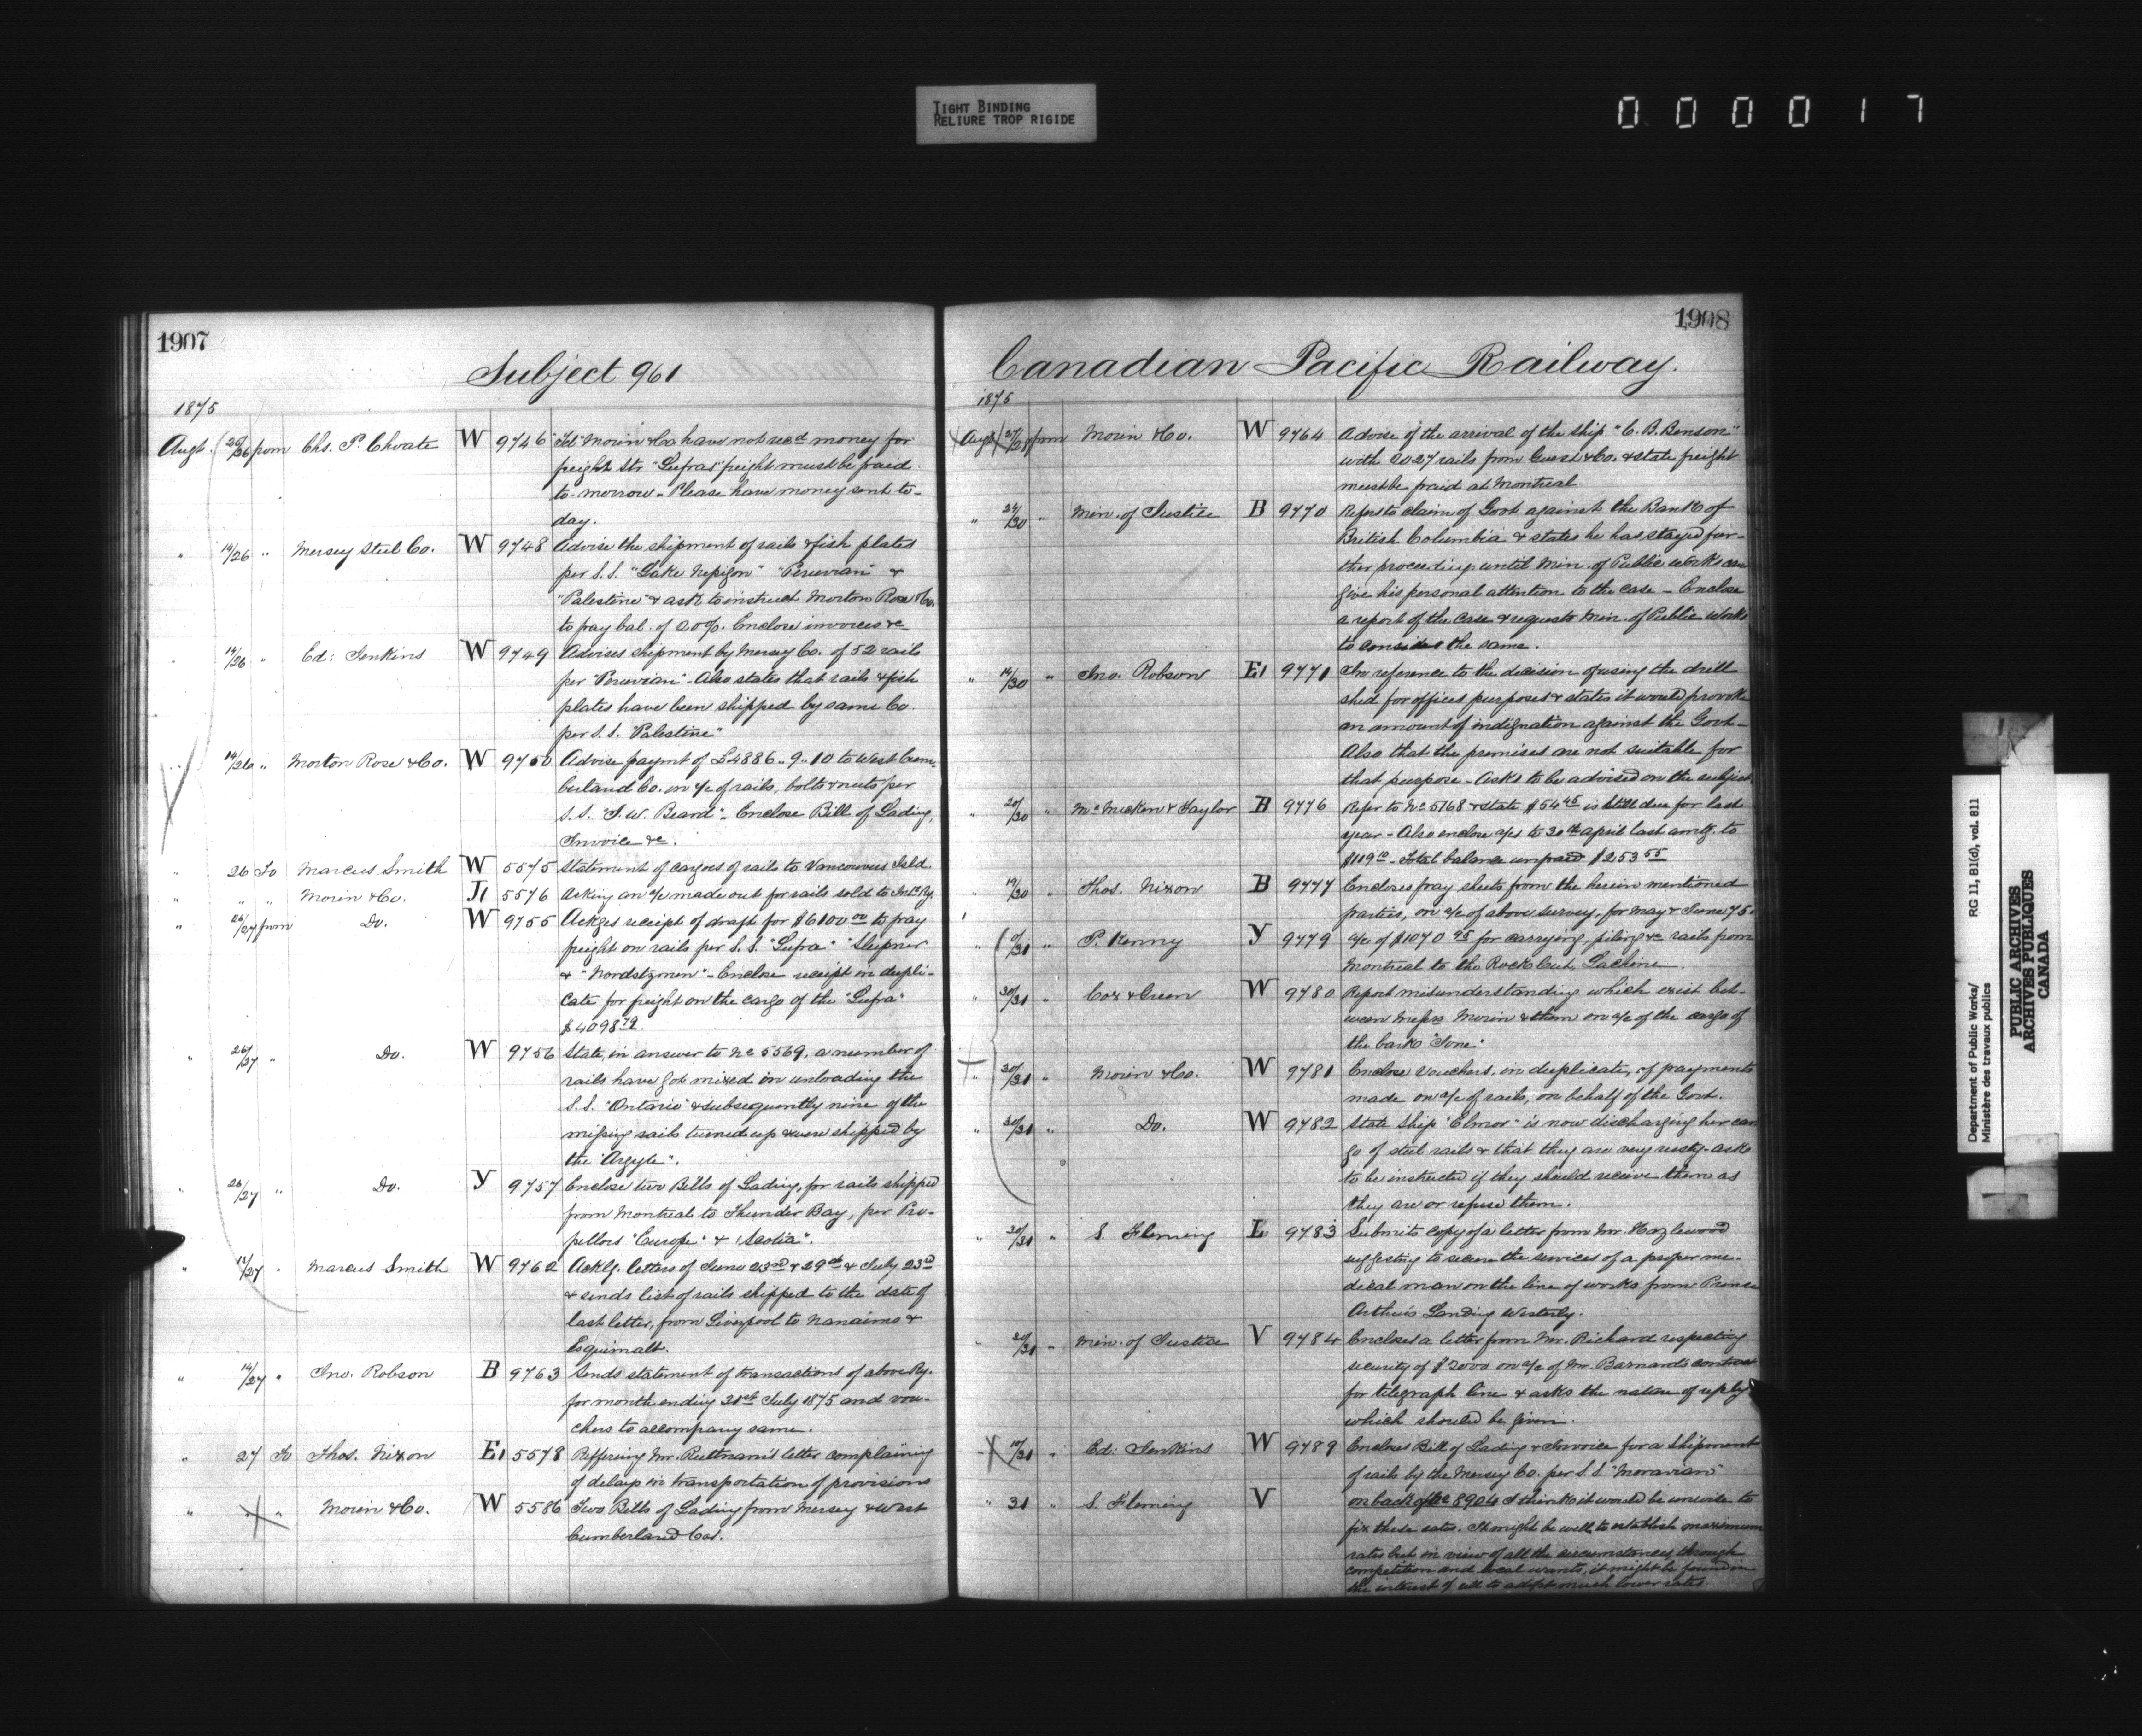 TIGHT BINDING
RELIURE TROP RIGIDE
000017
1907
Subject 961
1875
Augt. 26/26 from Chs. P. Choate W 9746 Tel. Morin & Co have not recd money for
freight Str "Gufra" freight must be paid
to-morrow - Please have money sent to-
day.
" 14/26 " Mersey Steel Co. W 9748 Advise the shipment of rails & fish plates
per S.S. "Lake Nepigon" "Peruvian" &
"Palestine" & ask to instruct Morton Rose & Co.
to pay bal. of 20%. Enclose invoices &c
" 14/26 " Ed: Jenkins W 9749 Advises shipment by Mersey Co. of 52 rails
per "Peruvian" - Also states that rails & fish
plates have been shipped by same Co.
per S.S. "Palestine"
" 14/26 " Morton Rose & Co. W 9750 Advise paymt of £4886..9..10 to West Cum-
berland Co. on a/c of rails, bolts & nuts per
S.S. "J.W. Beard" - Enclose Bill of Lading,
Invoice &c.
" 26 To Marcus Smith W 5575 Statement of cargoes of rails to Vancouver Isld.
" " " Morin & Co. J1 5576 Asking an a/c made out for rails sold to Intl. Ry.
" 26/27 from Do. W 9755 Ackges receipt of draft for $6100 00 to pay
freight on rails per S.S. "Gufra" "Sleipner
& "Nordstzmen" - Enclose receipt in dupli-
cate for freight on the cargo of the "Gufra"
$4098 79.
" 26/27 " Do. W 9756 State, in answer to No 5569, a number of
rails have got mixed in unloading the
S.S. "Ontario" & subsequently nine of the
missing rails turned up & were shipped by
the "Argyle".
" 26/27 " Do. Y 9757 Enclose two Bills of Lading, for rails shipped
from Montreal to Thunder Bay, per Pro-
pellors "Europe" & "Scotia".
" 12/27 " Marcus Smith W 9762 Ackg. letters of June 23rd & 29th & July 23rd
& sends list of rails shipped to the date of
last letter, from Liverpool to Nanaimo &
Esquimalt.
" 14/27 " Jno. Robson B 9763 Sends statement of transactions of above Ry.
for month ending 31st July 1875 and vou-
chers to accompany same.
" 27 To Thos. Nixon E1 5578 Reffering Mr. Ruttnan's letter complaining
of delays in transportation of provisions
" " " Morin & Co. W 5586 Two Bills of Lading from Mersey & West
Cumberland Cos.
1908
Canadian Pacific Railway.
1875
Augt 27/28 from Morin & Co. W 9764 Advise of the arrival of the ship "C. B. Benson"
with 2027 rails from Guest & Co. & state freight
must be paid at Montreal
" 24/30 " Min. of Justice B 9770 Refers to claim of Govt against the Bank of
British Columbia & states he has stayed fur-
ther proceedings until Min. of Public Works can
give his personal attention to the case - Enclose
a report of the case & requests Min. of Public Works
to consider the same.
" 14/30 " Jno. Robson E1 9771 In reference to the decision of using the drill
shed for offices purposes & states it would provoke
an amount of indignation against the Govt -
Also that the premises are not suitable for
that purpose - Asks to be advised on the subject
" 20/30 " McMicken & Taylor B 9776 Refer to No 5768 & state $54 45 is still due for last
year - Also enclose a/cs to 30th April last amtg. to
$119 10 - Total balance unpaid $253 55
" 19/30 " Thos. Nixon B 9777 Encloses pay sheets from the herein mentioned
parties, on a/c of above survey, for May & June 75.
" 0/31 " P. Kenny Y 9779 a/c of $1070 95 for carrying, piling &c rails from
Montreal to the Rock Cut, Lachine
" 30/31 " Cox & Green W 9780 Report misunderstanding which exist bet-
ween Messrs Morin & them on a/c of the cargo of
the bark "Ione"
" 30/31 " Morin & Co. W 9781 Enclose vouchers, in duplicate, of payments
made on a/c of rails, on behalf of the Govt.
" 30/31 " Do. W 9782 State Ship "Elmor" is now discharging her car
go of steel rails & that they are very rusty - asks
to be instructed if they should receive them as
they are or refuse them.
" 30/31 " S. Fleming L 9783 Submits copy of a letter from Mr. Hazlewood
suggesting to secure the services of a proper me-
dical man on the line of works from Prince
Arthurs Landing Westerly.
" 30/31 " Min. of Justice V 9784 Encloses a letter from Mr. Richard respecting
security of $2000 on a/c of Mr. Barnard's contract
for telegraph line & asks the nature of reply
which should be given.
" 18/31 " Ed: Jenkins W 9789 Encloses Bill of Lading & Invoice for a shipment
of rails by the Mersey Co. per S.S. "Moravian"
" 31 " S. Fleming V on back of No 8904 I think it would be unwise to
fix these rates. It might be well, to establish maximum
rates but in view of all the circumstances through
competition and local wants, it might be found in
the interest of all to adopt much lower rates.
Department of Public Works/ RG 11, B1(d), vol. 811
Ministère des travaux publics
PUBLIC ARCHIVES
ARCHIVES PUBLIQUES
CANADA